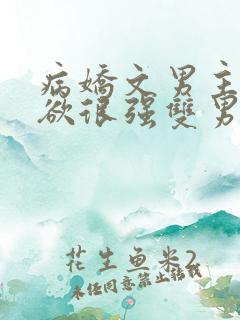 病嬌文男主
欲很强雙男
花生鱼米2
未经同意禁止转载